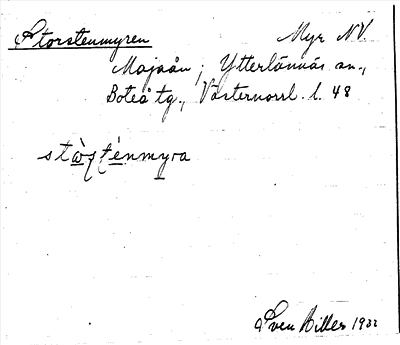 Storstenmyren Myr NV.
Majaån; Ytterlännäs sn.,
Boteå tg., Västernorrl. l. 48
stὼʂʈénmyra
Sven Biller 1932